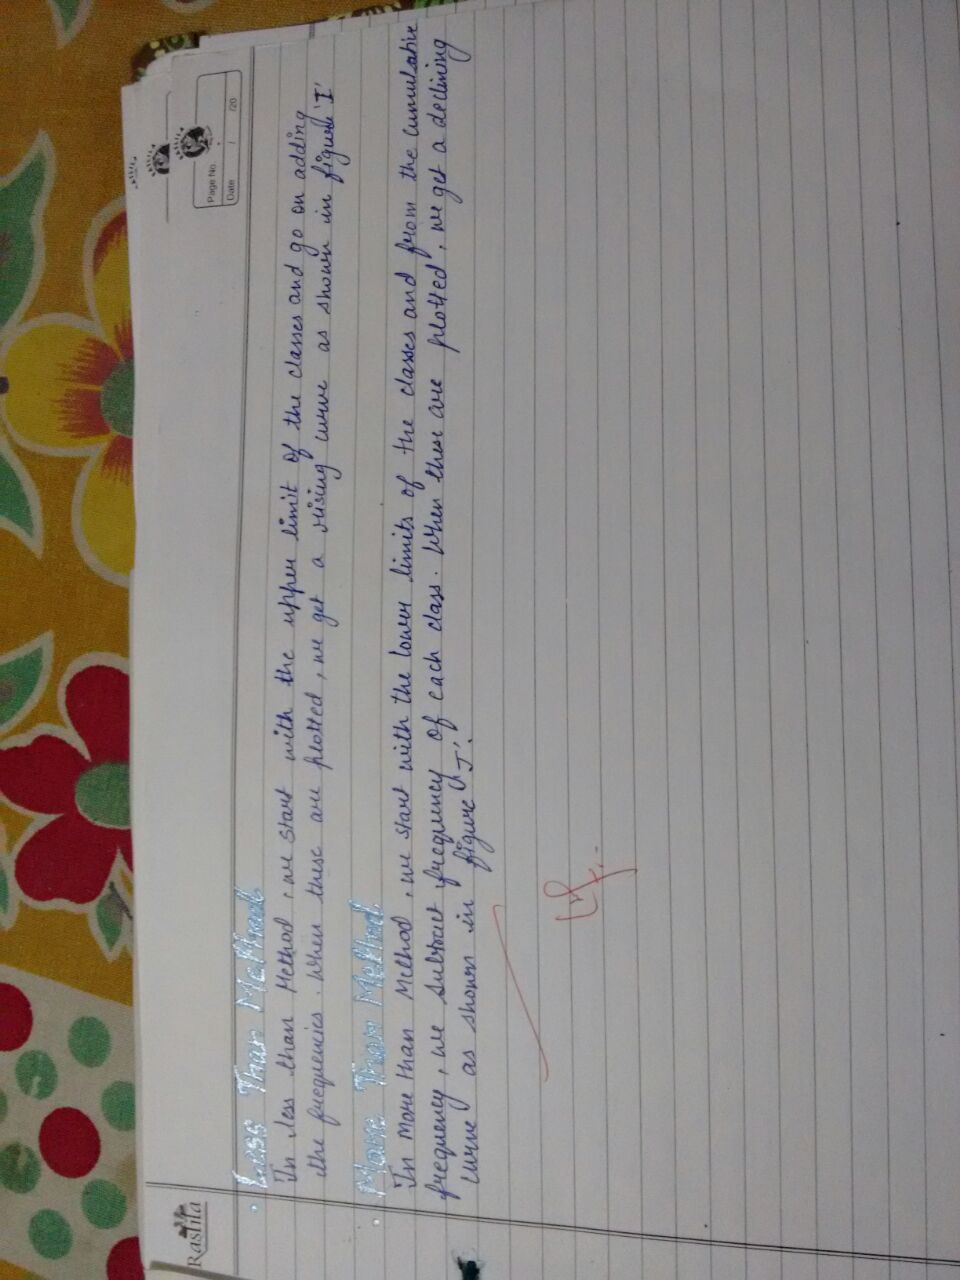 Rastila
RASLILA
RASLILA
RASLILA
Page No.
Date / /20
• Less Than Method
In less than Method, we start with the upper limit of the classes and go on adding
the frequencies. When these are plotted, we get a rising curve as shown in figure 'I'
• More Than Method
In more than Method, we start with the lower limits of the classes and from the cumulative
frequency, we subtract frequency of each class. When these are plotted, we get a declining
curve as shown in figure 'J'.